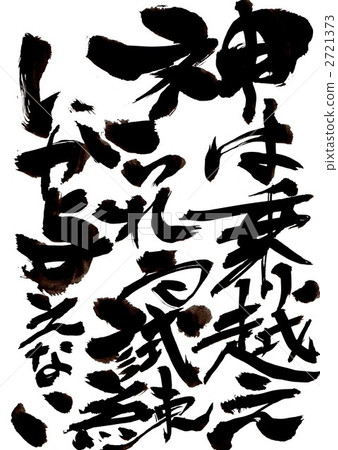 神は乗り越え
られる試練
しか与えない